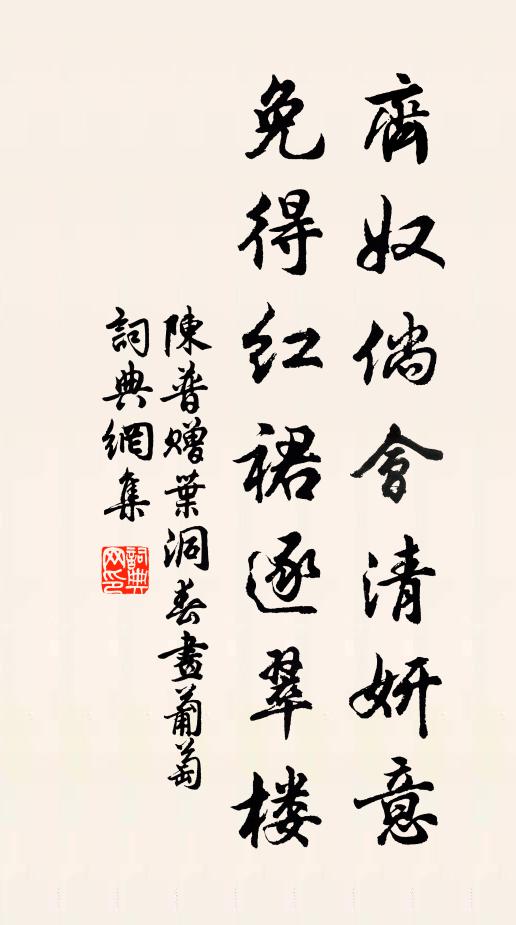 齊奴倘會清妍意
免得红裙逐翠楼
陳普赠葉洞春畫葡萄
詞典網集
詞典网印